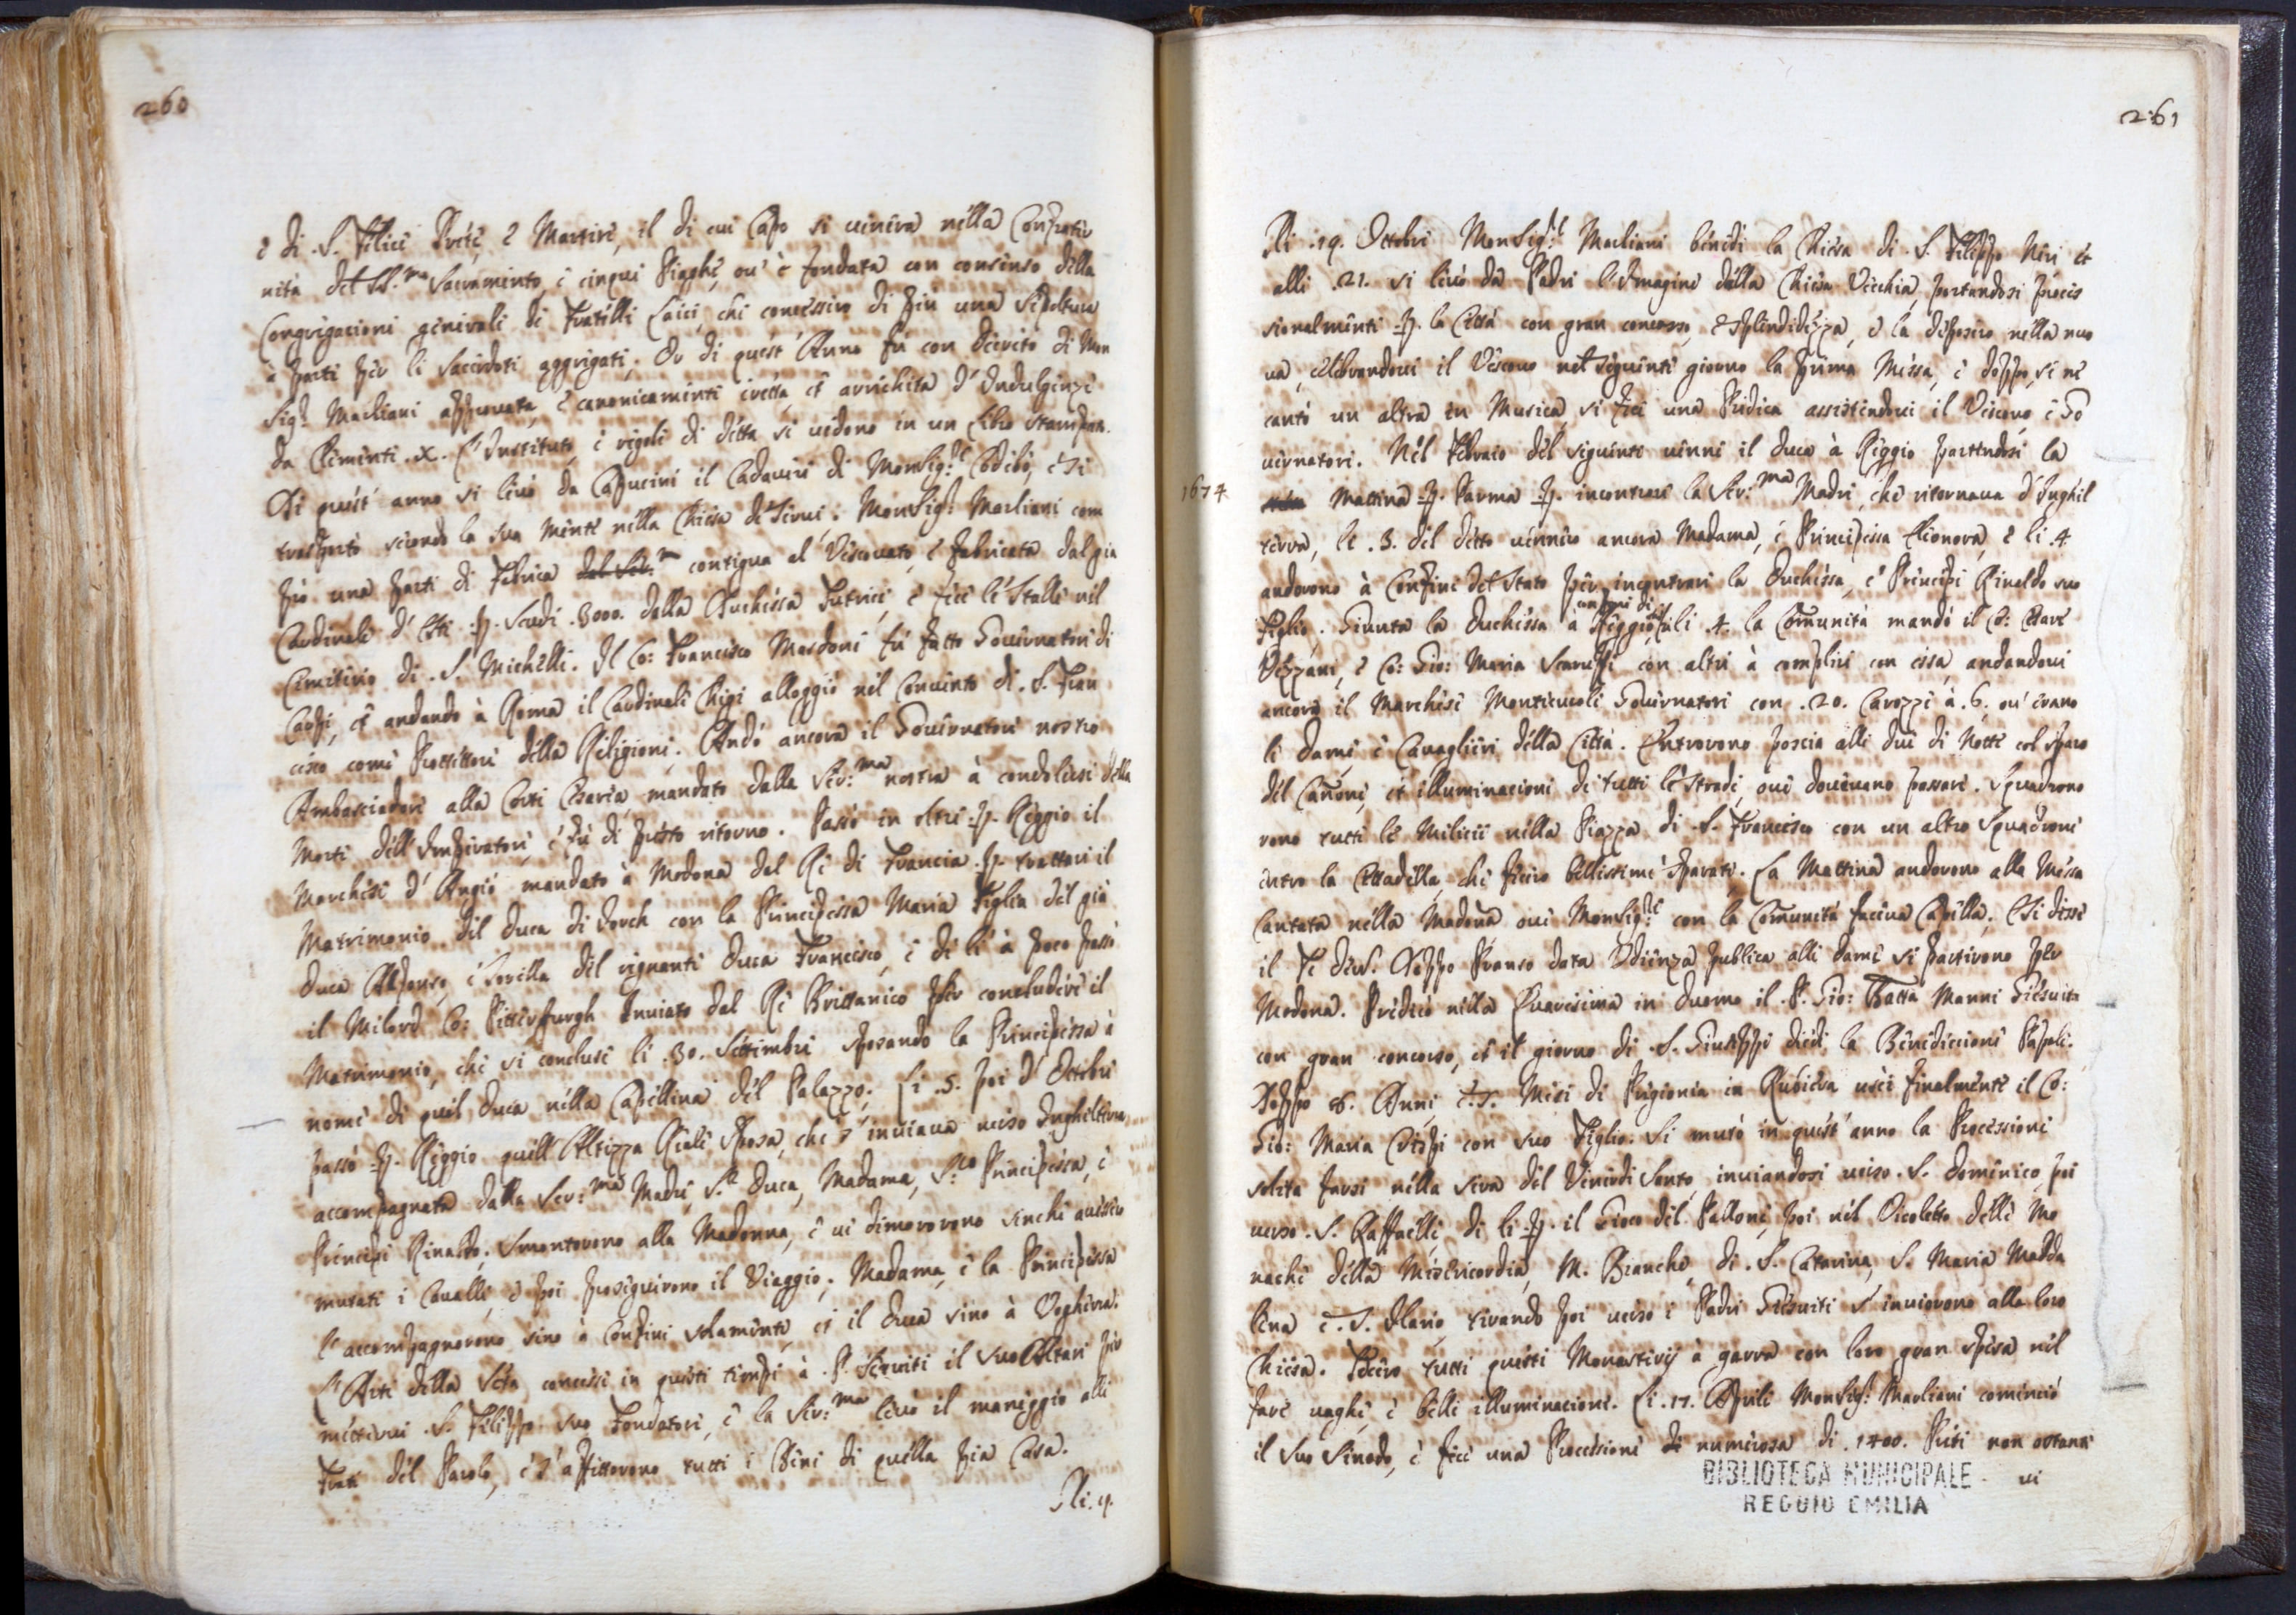 260
è di .S. Felice Prete, è Martire, il di cui Capo si venera nella Confrater
nità del SS.mo Sacramento, è cinque Piaghe, ov' è fondata con consenso della
Congregacione generale di Fratelli Laici, che concessero di più una Sepoltura
à parte per li Sacerdoti aggregati. Or di quest' Anno fù con decreto di Mon
Sig.r Marliani approvata, è canonicamente eretta, et arrichita d' Indulgenze
da Clemente .X. L' Instituto, è regole di detta si vedono in un Libro stampato.
Di quest' anno si levò da Capucini il Cadavere di MonSig.re Codebò, è si
trasportò secondo la sua mente nella Chiesa de Servi. MonSig.r Marliani com
prò una parte di Fabrica del Ser.mo contigua al Vescovato, è fabricata dal già
Cardinale d' Este .p. Scudi .3000. dalla Duchessa Tutrice, è fece le Stalle nel
Cimiterio di .S. Michelle. Il Co: Francesco Mardoni fù fatto Governatore di
Carpi, et andando à Roma il Cardinale Chigi alloggiò nel Convento di .S. Fran
cesco come Protettore della Religione. Andò ancora il Governatore nostro
Ambasciadore alla Corte Cesarea, mandato dalla Ser.ma nostra à condolersi della
Morte dell' Imperatore, è fù di presto ritorno. Passò in oltre .p. Reggio il
Marchese d' Angiò mandato à Modona dal Rè di Francia .p. trattare il
Matrimonio del Duca di Jorch con la Principessa Maria Figlia del già
Duca Alfonso, è Sorella del regnante Duca Francesco, è di lì à poco passò
il Milord Co: Pitterburgh Inviato dal Rè Brittanico per concludere il
Matrimonio, che si concluse li .30. Settembre sposando la Principessa à
nome di quel Duca nella Capellina del Palazzo. Li .5. poi d' Ottobre
passò .p. Reggio quell' Altezza Reale Sposa, che s' inviava verso Inghilterra,
accompagnata dalla Ser.ma Madre, S.r Duca, Madama, S.ra Principessa, è
Principe Rinaldo. Smontorono alla Madonna, è vi dimororono sinche avesser
mutati i Cavalli, è poi proseguirono il Viaggio. Madama, è la Principessa
l' accompagnorono sino à Confini solamente, et il Duca sino à Voghera.
L' Arte della Seta concesse in questi tempi à .P. Serviti il suo Altare per
mettervi .S. Filippo suo Fondatore, è la Ser.ma levò il maneggio alli
Frati del Parolo, è s' affittorono tutti i Beni di quella pia Casa.
Alli .9.
261
Li .19. Ottobre MonSig.re Marliani benedì la Chiesa di S. Filippo Neri et
alli .21. si levò da Padri l' Imagine dalla Chiesa Vecchia, portandosi proces
sionalmente .p. la Città con gran concorso, è splendidezza, è la deposero nella nuo
va, celebrandovi il Vescovo nel seguente giorno la prima Messa, è doppo si ne
cantò un altra in Musica, si fece una Predica assistendovi il Vescovo, è Go
vernatore. Nel Febraio del seguente venne il Duca à Reggio partendosi la
1674
Mattina .p. Parma .p. incontrare la Ser.ma Madre, che ritornava d' Inghil
terra, li .3. del detto vennero ancora Madama, è Principessa Eleonora, è li .4.
andorono à Confine del Stato per incontrare la Duchessa, è Principe Rinaldo suo
Figlio. Giunta la Duchessa a confini di Reggio, alli .4. la Comunità mandò il Co: Cesare
Vezzani, è Co: Gio: Maria Scaruffi con altri à complire con essa, andandovi
ancora il Marchese Montecucoli Governatore con .20. Carozze à .6. ov' erano
le Dame, è Cavaglieri della Città. Entrorono poscia alle due di Notte col sparo
del Canone, et illuminacione di tutte le Strade, ove dovevano passare. Squadrono
rono tutte le Milicie nella Piazza di .S. Francesco con un altro Squadrone
entro la Cittadella, che fecero bellissime sparate. La Mattina andorono alla Messa
Cantata nella Madona ove MonSig.re con la Comunità faceva Capella. E si disse
il Te Deum. Doppo Pranso data Udienza publica alle Dame si partirono per
Modona. Predicò nella Quaresima in Duomo il .P. Gio: Batta Manni Giesuita
con gran concorso, et il giorno di .S. Giuseppe diede la Benedicione Papale.
Doppo .8. Anni, è .7. Mesi di Prigionia in Rubiera uscì finalmente il Co:
Gio: Maria Crispi con suo Figlio. Si mutò in quest' anno la Processione
solita farsi nella sera del Venerdi Santo inviandosi verso .S. Domenico, poi
verso .S. Raffaelle, di lì .p. il Gioco del Pallone, poi nel Vicoletto delle Mo
nache della Misericordia, M. Bianche, di .S. Catarina, S. Maria Madda
lena è .S. Ilario, tirando poi verso i Padri Giesuiti s' inviorono alla loro
Chiesa. Fecero tutti questi Monasterij à garra con loro gran spesa nel
fare vaghe, è belle illuminacioni. Li .17. Aprile MonSig.r Marliani cominciò
il suo Sinodo, è fece una Processione di numerosa di .1400. Preti non ostante
vi
BIBLIOTECA MUNICIPALE
REGGIO EMILIA